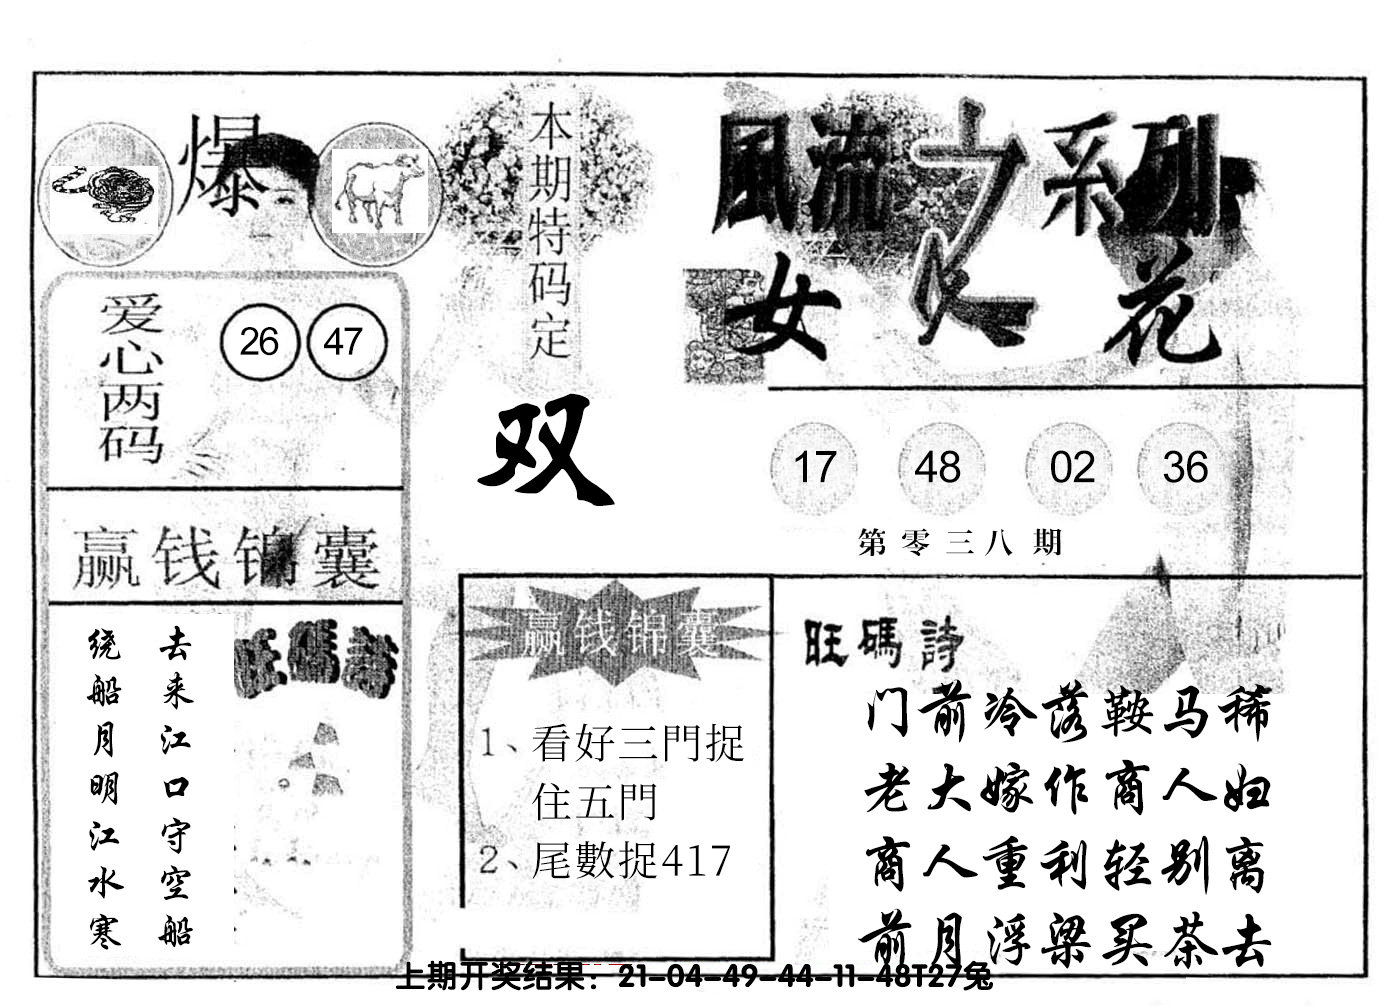 爆
本期特码定
双
風流之系列
女人花
爱心两码
26 47
17 48 02 36
第零三八期
赢钱锦囊
去来江口守空船
绕船月明江水寒
旺碼詩
赢钱锦囊
1、看好三門捉
住五門
2、尾數捉417
旺碼詩
门前冷落鞍马稀
老大嫁作商人妇
商人重利轻别离
前月浮梁买茶去
上期开奖结果：21-04-49-44-11-48T27兔